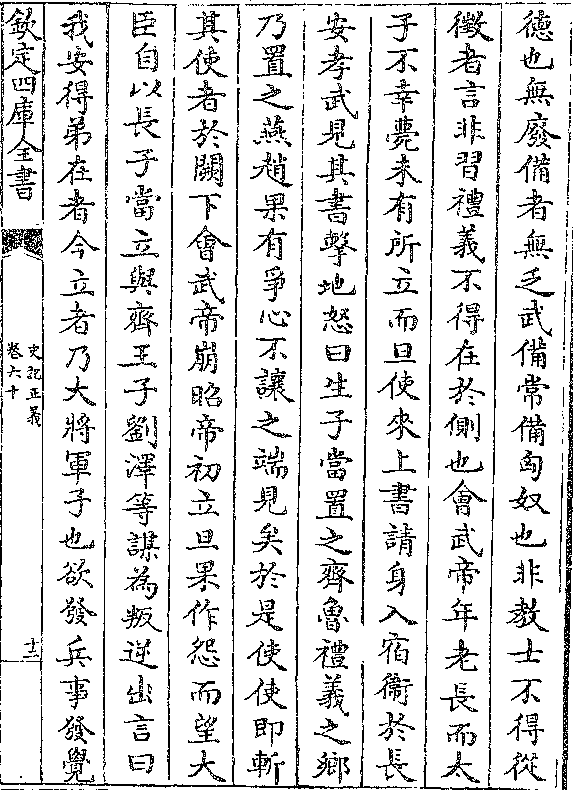 德也無廢備者無乏武備常備匈奴也非敎士不得從
徵者言非習禮義不得在於側也會武帝年老長而太
子不幸薨未有所立而旦使來上書請身入宿衞於長
安孝武見其書擊地怒曰生子當置之齊魯禮義之鄉
乃置之燕趙果有爭心不讓之端見矣於是使使即斬
其使者於闕下會武帝崩昭帝初立旦果作怨而望大
臣自以長子當立與齊王子劉澤等謀為叛逆出言曰
我安得弟在者今立者乃大將軍子也欲發兵事發覺
欽定四庫全書
史記正義
卷六十
十三